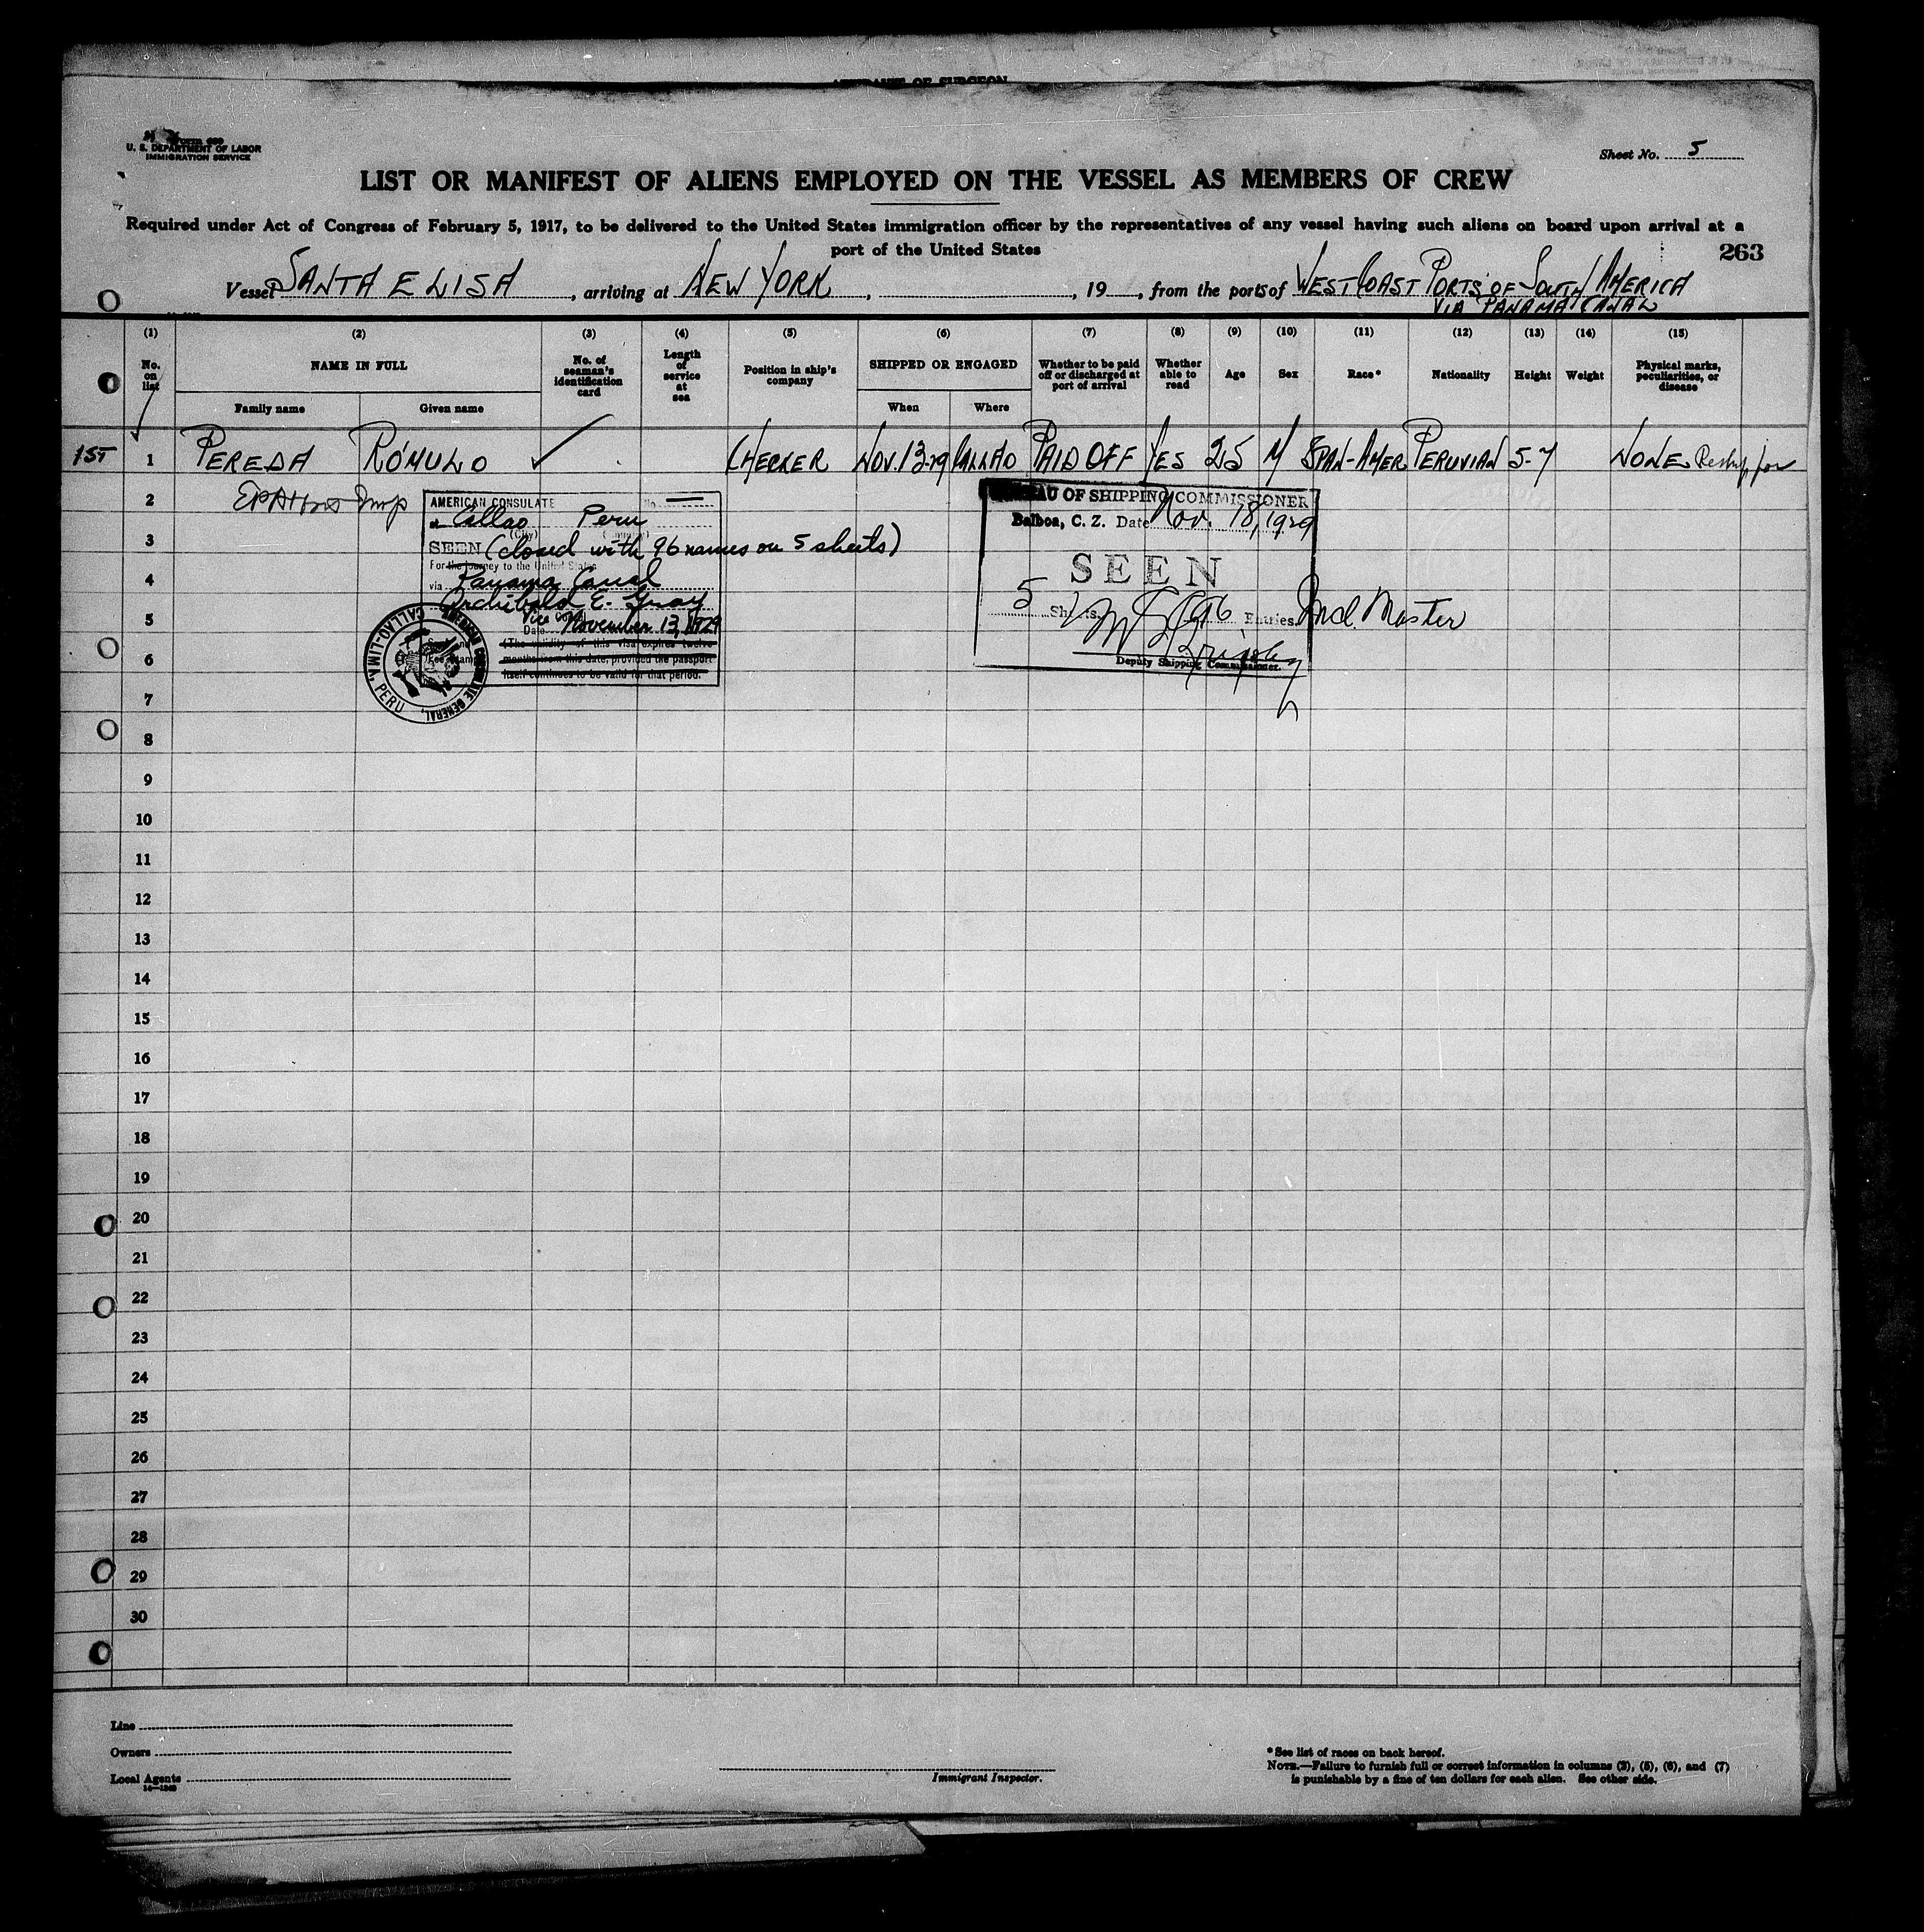 AFFIDAVIT OF SURGEON
U. S. DEPARTMENT OF LABOR
IMMIGRATION SERVICE
Sheet No. 5
LIST OR MANIFEST OF ALIENS EMPLOYED ON THE VESSEL AS MEMBERS OF CREW
Required under Act of Congress of February 5, 1917, to be delivered to the United States immigration officer by the representatives of any vessel having such aliens on board upon arrival at a
port of the United States
263
Vessel SANTA ELISA, arriving at NEW YORK, , 19 , from the ports of WEST COAST PORTS OF SOUTH AMERICA
VIA PANAMA CANAL
(1) (2) (3) (4) (5) (6) (7) (8) (9) (10) (11) (12) (13) (14) (15)
No. on list NAME IN FULL No. of seaman's identification card Length of service at sea Position in ship's company SHIPPED OR ENGAGED Whether to be paid off or discharged at port of arrival Whether able to read Age Sex Race* Nationality Height Weight Physical marks, peculiarities, or disease
Family name Given name When Where
1ST 1 PEREDA ROMULO CHECKER NOV. 13-29 CALLAO PAID OFF YES 25 M SPAN-AMER PERUVIAN 5-7 NONE
2
3
4
5
6
7
8
9
10
11
12
13
14
15
16
17
18
19
20
21
22
23
24
25
26
27
28
29
30
AMERICAN CONSULATE No.
at Callao Peru
(City)
SEEN (closed with 96 names on 5 sheets)
For the journey to the United States
via Panama Canal
Archibald E. Gray
Vice Consul
Date November 13, 1929
(The validity of this visa expires twelve
months from this date, provided the passport
itself continues to be valid for that period.
AMERICAN CONSULATE GENERAL, CALLAO-LIMA, PERU
BUREAU OF SHIPPING COMMISSIONER
Balboa, C. Z. Date Nov. 18, 1929
SEEN
5 Sheets 96 Entries Incl. Master
Deputy Shipping Commissioner.
Line
Owners
Local Agents
Immigrant Inspector.
* See list of races on back hereof.
NOTE.—Failure to furnish full or correct information in columns (2), (5), (6), and (7)
is punishable by a fine of ten dollars for each alien. See other side.